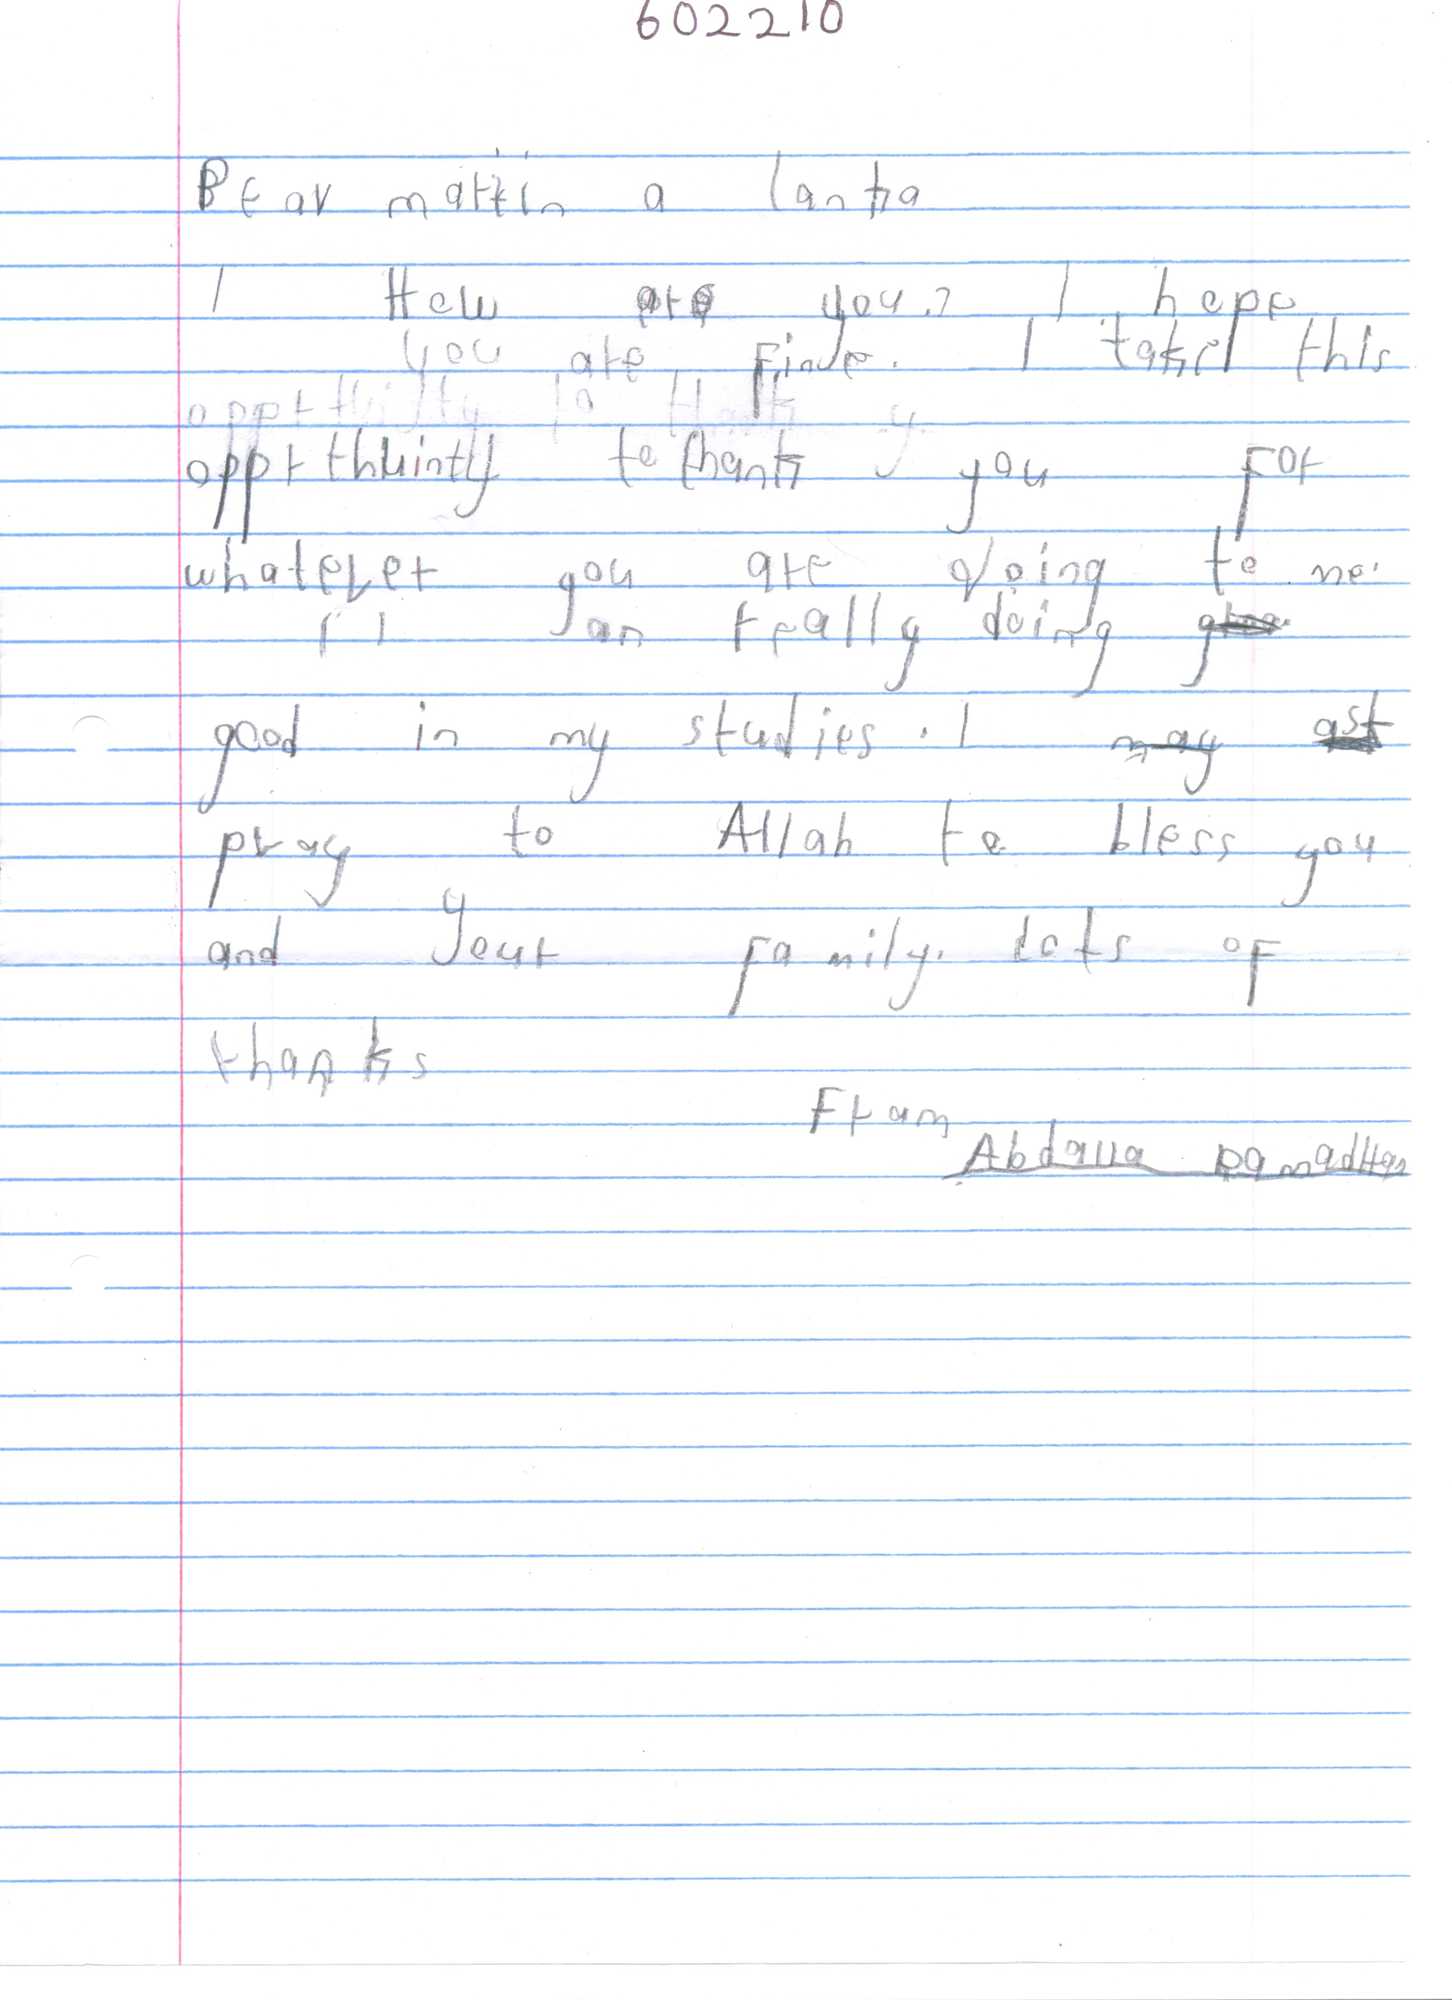 602210
Dear martin a lanka
I How are you? I hope
you are Fine. I take this
opprthuinty to thank y
opprthuinty to thank you For
whatever you are doing to me.
I am really doing
good in my studies. I may ask
pray to Allah to bless you
and your Family. Lots of
thanks
From
Abdalla RamadHan